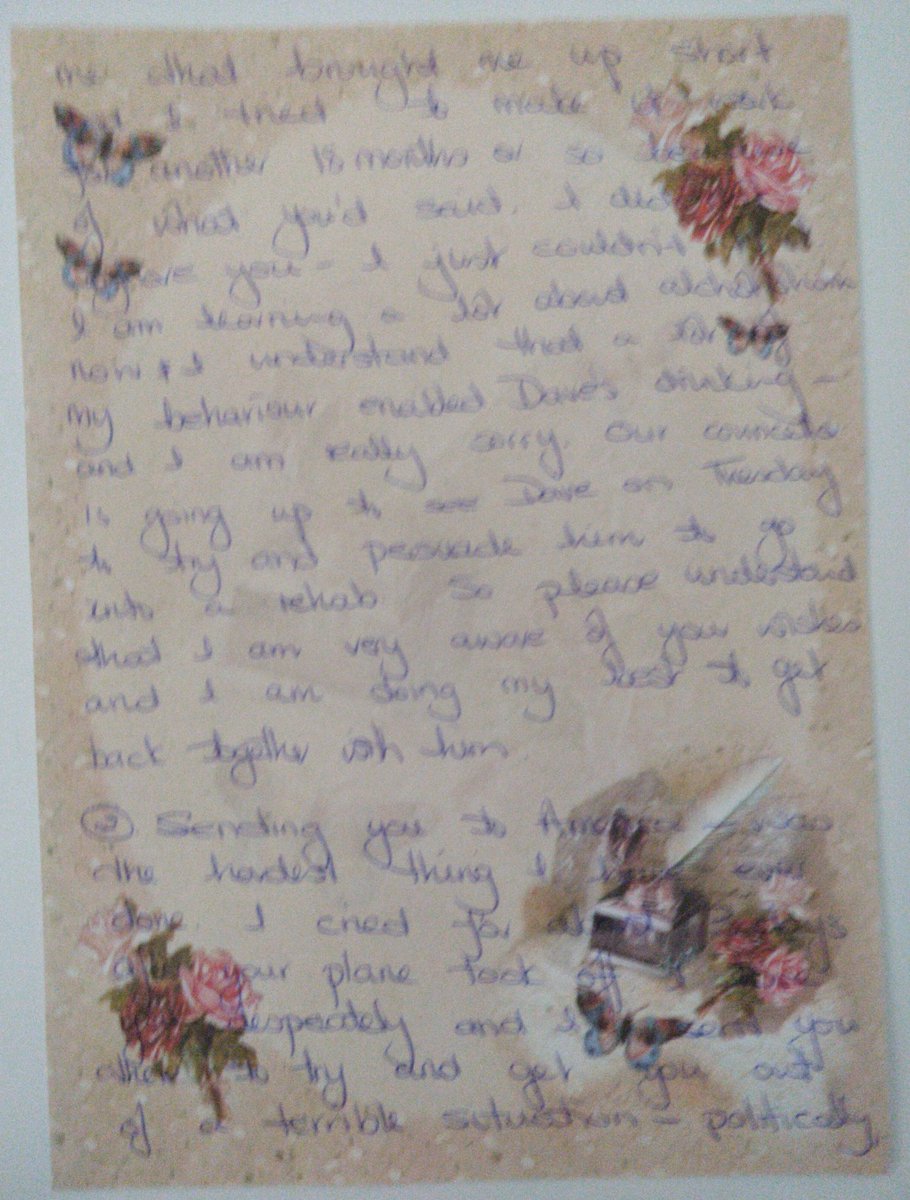 me that brought me up short
but I tried to make it work
for another 18 months or so because
of what you'd said. I did
ignore you - I just couldn't
I am learning a lot about alcoholism
now & I understand that a lot of
my behaviour enabled Dave's drinking -
and I am really sorry. Our councelor
is going up to see Dave on Tuesday
to try and persuade him to go
into a rehab. So please understand
that I am very aware of your wishes
and I am doing my best to get
back together with him.
② Sending you to America - was
the hardest thing I have ever
done. I cried for days
after your plane took off. I
desperately and I you
there to try and get you out
of a terrible situation - politically,